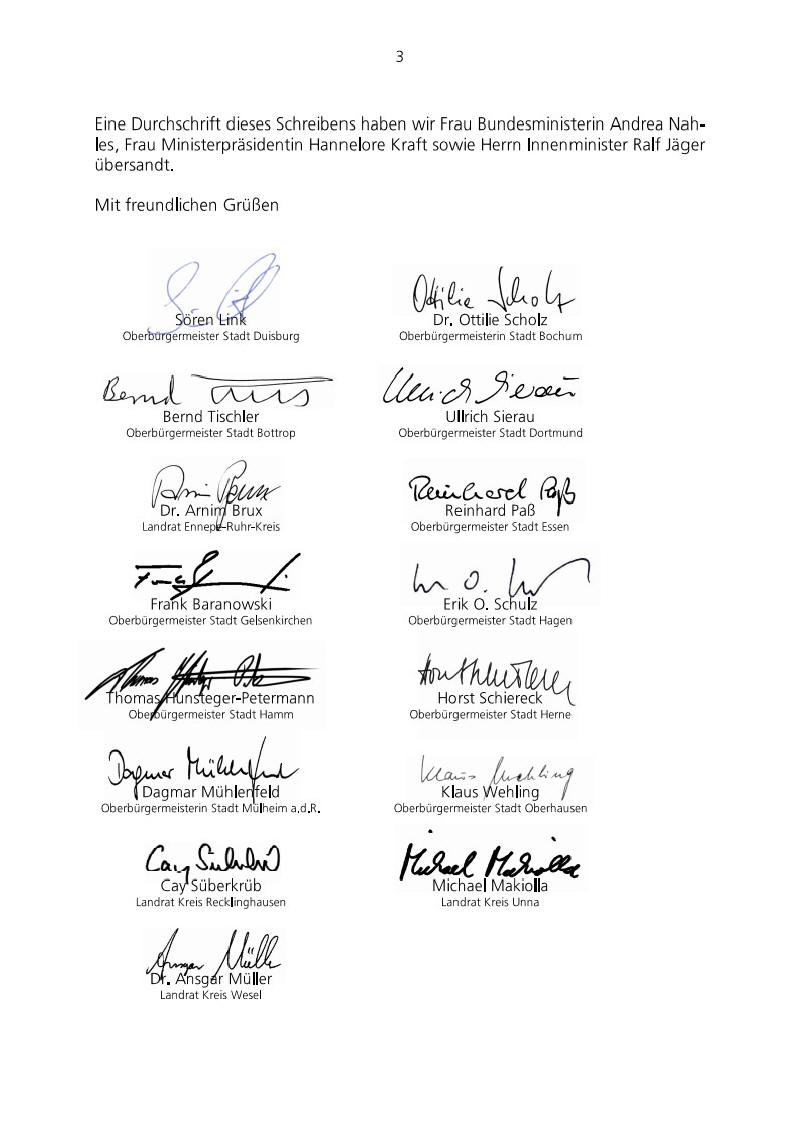 3
Eine Durchschrift dieses Schreibens haben wir Frau Bundesministerin Andrea Nah-
les, Frau Ministerpräsidentin Hannelore Kraft sowie Herrn Innenminister Ralf Jäger
übersandt.
Mit freundlichen Grüßen
Sören Link
Oberbürgermeister Stadt Duisburg
Ottilie Scholz
Dr. Ottilie Scholz
Oberbürgermeisterin Stadt Bochum
Bernd
Bernd Tischler
Oberbürgermeister Stadt Bottrop
Ullrich Sierau
Ullrich Sierau
Oberbürgermeister Stadt Dortmund
Dr. Arnim Brux
Landrat Ennepe-Ruhr-Kreis
Reinhard Paß
Reinhard Paß
Oberbürgermeister Stadt Essen
Frank Baranowski
Oberbürgermeister Stadt Gelsenkirchen
Erik O. Schulz
Oberbürgermeister Stadt Hagen
Thomas Hunsteger-Petermann
Oberbürgermeister Stadt Hamm
Horst Schiereck
Oberbürgermeister Stadt Herne
Dagmar Mühlenfeld
Dagmar Mühlenfeld
Oberbürgermeisterin Stadt Mülheim a.d.R.
Klaus Wehling
Klaus Wehling
Oberbürgermeister Stadt Oberhausen
Cay Süberkrüb
Cay Süberkrüb
Landrat Kreis Recklinghausen
Michael Makiolla
Michael Makiolla
Landrat Kreis Unna
Ansgar Müller
Dr. Ansgar Müller
Landrat Kreis Wesel